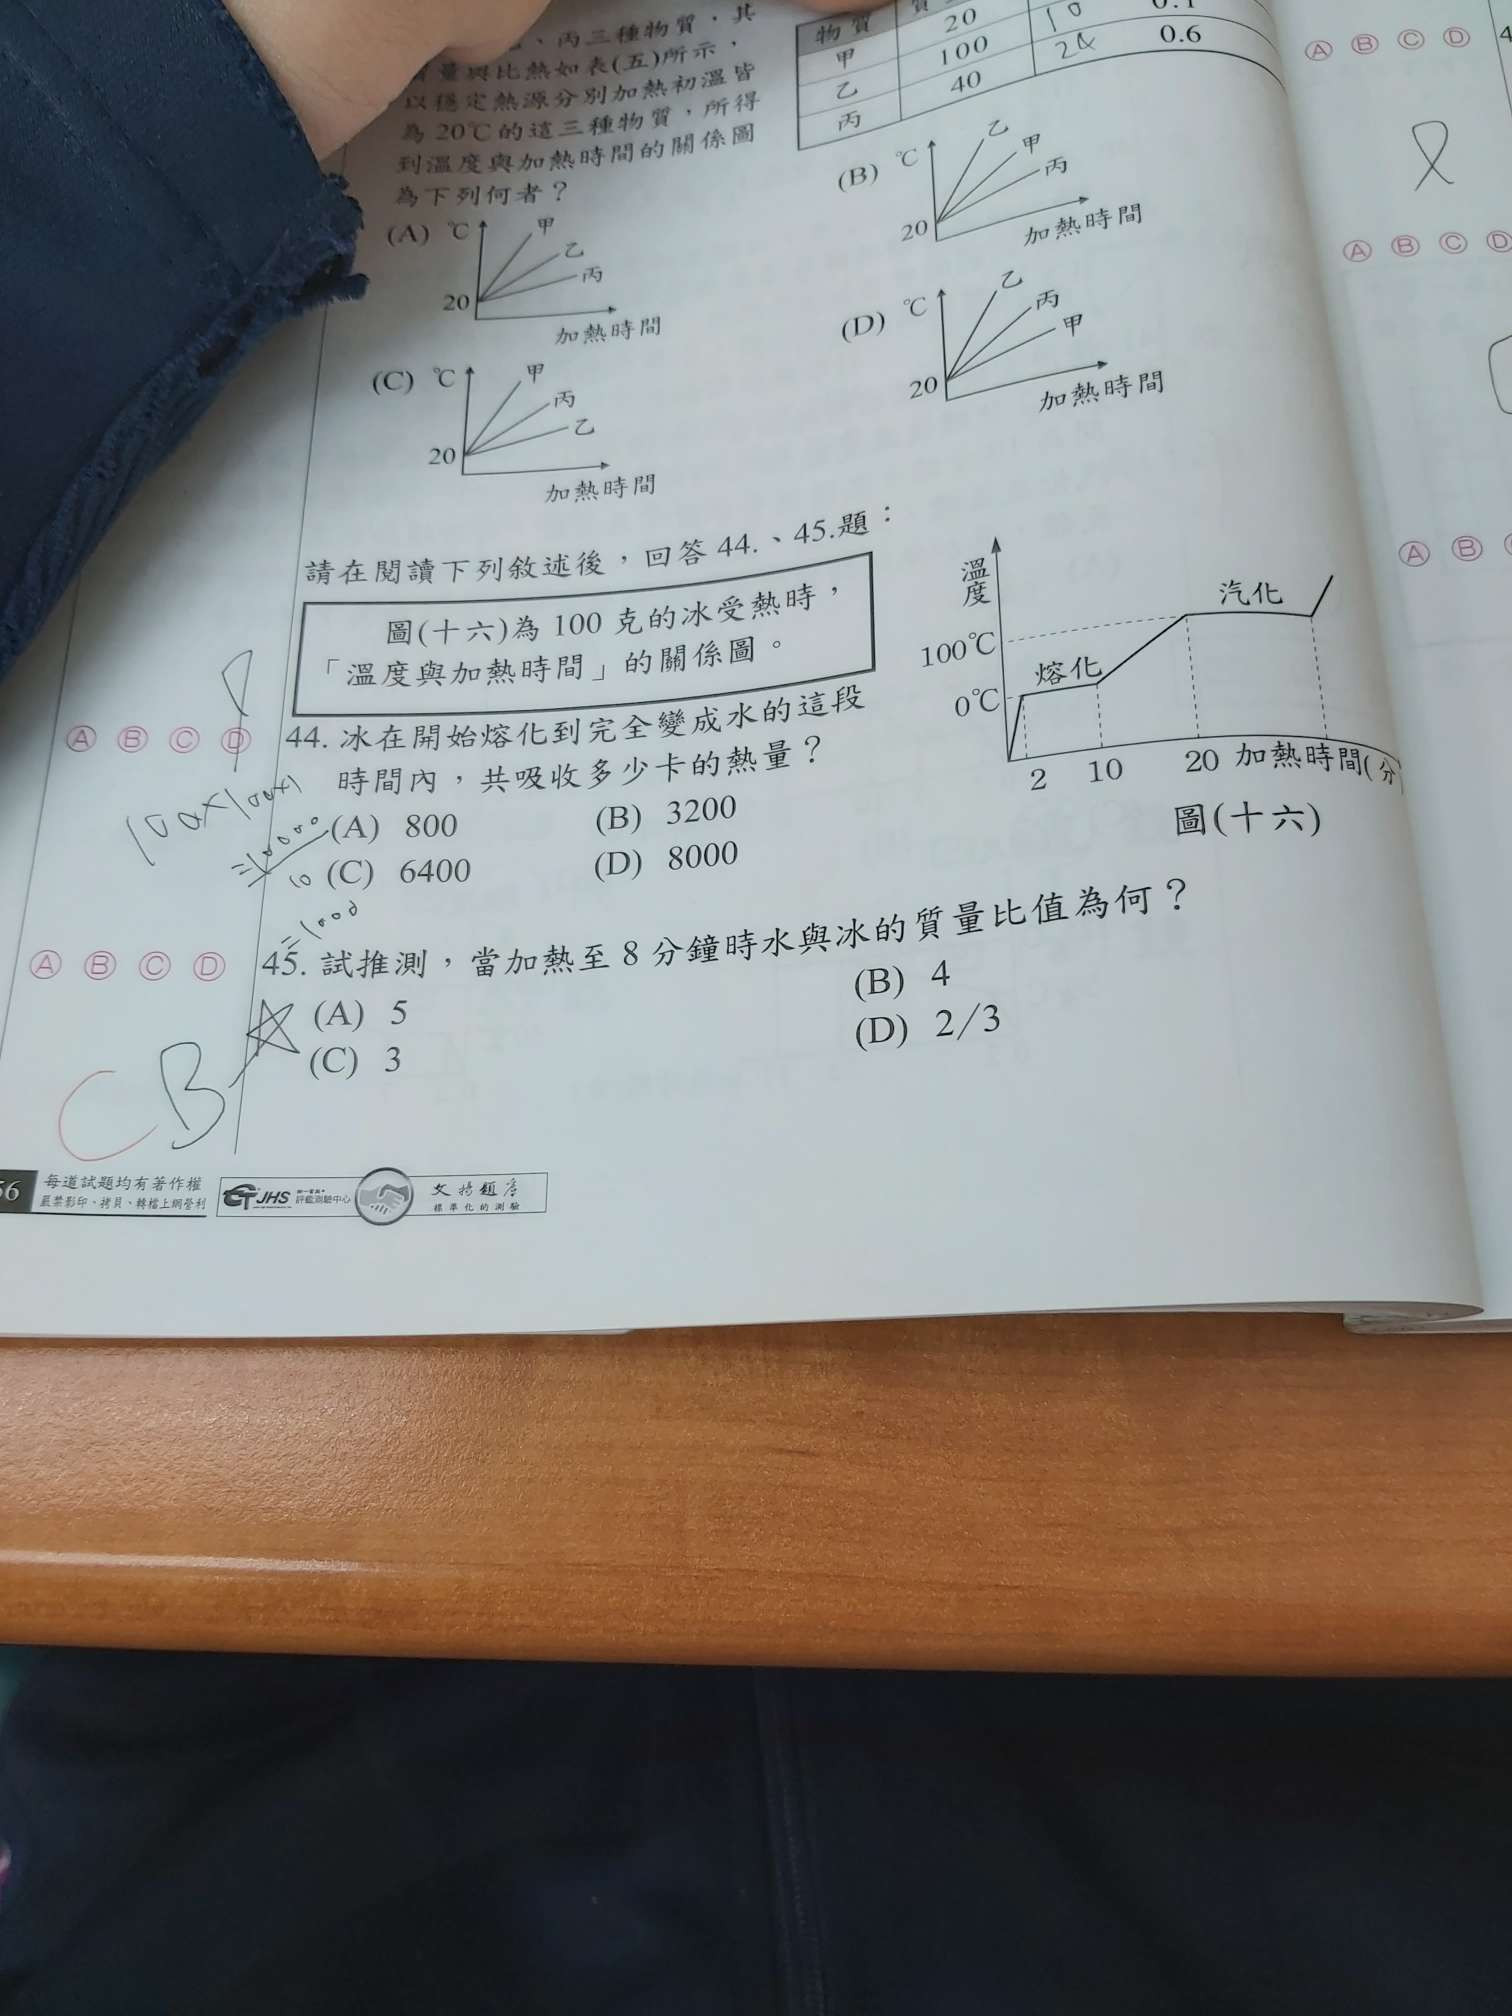 、丙三種物質，其
質量與比熱如表(五)所示，
以穩定熱源分別加熱初溫皆
為20℃的這三種物質，所得
到溫度與加熱時間的關係圖
為下列何者？
物質
甲 20 10
乙 100 0.6
丙 40
(A) ℃ 甲 乙 丙
20 加熱時間
(B) ℃ 乙 甲 丙
20 加熱時間
(C) ℃ 甲 丙 乙
20 加熱時間
(D) ℃ 乙 丙 甲
20 加熱時間
請在閱讀下列敘述後，回答44.、45.題：
圖(十六)為100克的冰受熱時，
「溫度與加熱時間」的關係圖。
Ⓐ Ⓑ Ⓒ Ⓓ 44. 冰在開始熔化到完全變成水的這段
時間內，共吸收多少卡的熱量？
(A) 800 (B) 3200
(C) 6400 (D) 8000
100×100×1
=10000
10
=1000
溫度
100℃
0℃
熔化
汽化
2 10 20 加熱時間(分
圖(十六)
Ⓐ Ⓑ Ⓒ Ⓓ 45. 試推測，當加熱至8分鐘時水與冰的質量比值為何？
(A) 5 (B) 4
(C) 3 (D) 2/3
C B
56 每道試題均有著作權
嚴禁影印、拷貝、轉檔上網營利
JHS 評鑑測驗中心
文揚題庫
標準化的測驗
Ⓐ Ⓑ Ⓒ Ⓓ 4
Ⓐ Ⓑ Ⓒ Ⓓ
Ⓐ Ⓑ